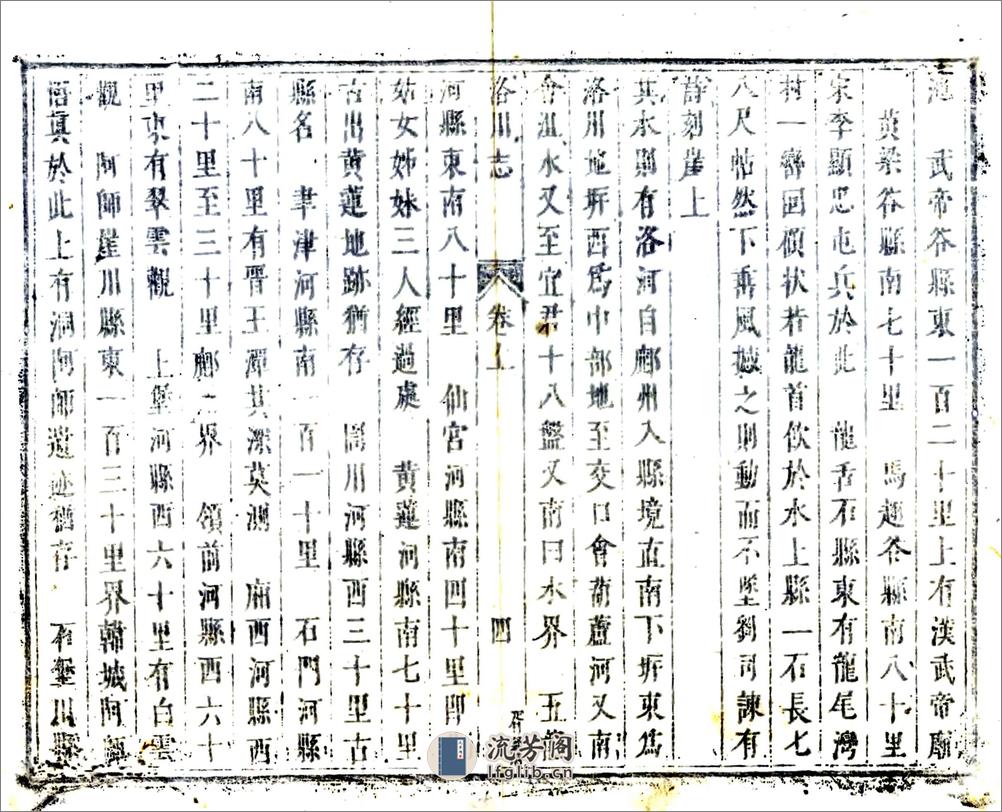 武帝谷縣東一百二十里上有漢武帝廟
黄梁谷縣南七十里 馬趨谷縣南八十里
宋李顯忠屯兵於此 龍舌石縣東有龍尾灣
村一巒回顧狀若龍首飲於水上縣一石長七
八尺帖然下垂風撼之則動而不墜劉司諫有
詩刻崖上
其水則有洛河自鄜州入縣境直南下坼東為
洛川地坼西爲中部地至交口會葫蘆河又南
會沮水又至宜君十八盤又南曰水界 五
洛川志 卷上 四
河縣東南八十里 仙宫河縣南四十里即
姑女姊妹三人經過處 黄蓮河縣南七十里
古出黄蓮地跡猶存 川河縣西三十里古
縣名 聿津河縣南一百一十里 石門河縣
南八十里有晋王潭其深莫測 廟西河縣西
二十里至三十里鄜之界 領前河縣西六十
里東有翠雲觀 上堡河縣西六十里有白雲
觀 阿師崖川縣東一百三十里界韓城阿師
悟真於此上有洞阿師遺迹猶存 川縣
流芳阁
lfglib.cn